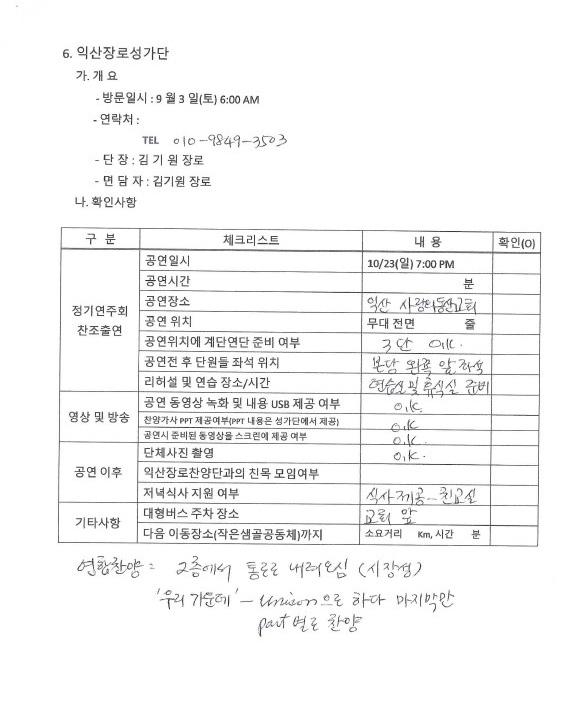 6. 익산장로성가단
가. 개 요
- 방문일시 : 9 월 3 일(토) 6:00 AM
- 연락처 :
TEL 010-9849-3503
- 단 장 : 김 기 원 장로
- 면 담 자 : 김기원 장로
나. 확인사항
구 분 체크리스트 내 용 확인(O)
정기연주회 찬조출연
공연일시 10/23(일) 7:00 PM
공연시간 분
공연장소 익산 사랑의동산교회
공연 위치 무대 전면 줄
공연위치에 계단연단 준비 여부 3단 O.K.
공연전 후 단원들 좌석 위치 본당 왼쪽 앞 좌석
리허설 및 연습 장소/시간 연습실 및 휴식실 준비
영상 및 방송
공연 동영상 녹화 및 내용 USB 제공 여부 O.K.
찬양가사 PPT 제공여부(PPT 내용은 성가단에서 제공) O.K.
공연시 준비된 동영상을 스크린에 제공 여부 O.K.
공연 이후
단체사진 촬영 O.K.
익산장로찬양단과의 친목 모임여부
저녁식사 지원 여부 식사제공 - 친교실
기타사항
대형버스 주차 장소 교회 앞
다음 이동장소(작은샘골공동체)까지 소요거리 Km, 시간 분
연합찬양 : 2층에서 통로로 내려오심 (시장성)
'우리 가운데' - unison으로 하다 마지막만
part별로 찬양